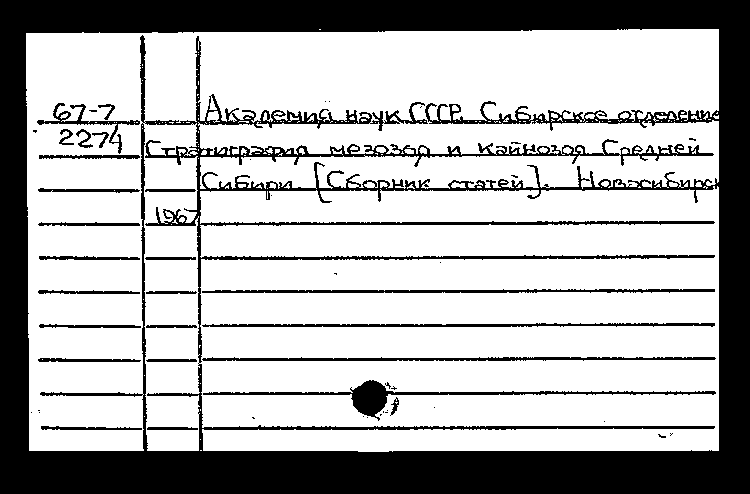 67-7 Академия наук СССР. Сибирское отделение
2274 Стратиграфия мезозоя и кайнозоя Средней
Сибири. [Сборник статей]. Новосибирск
1967